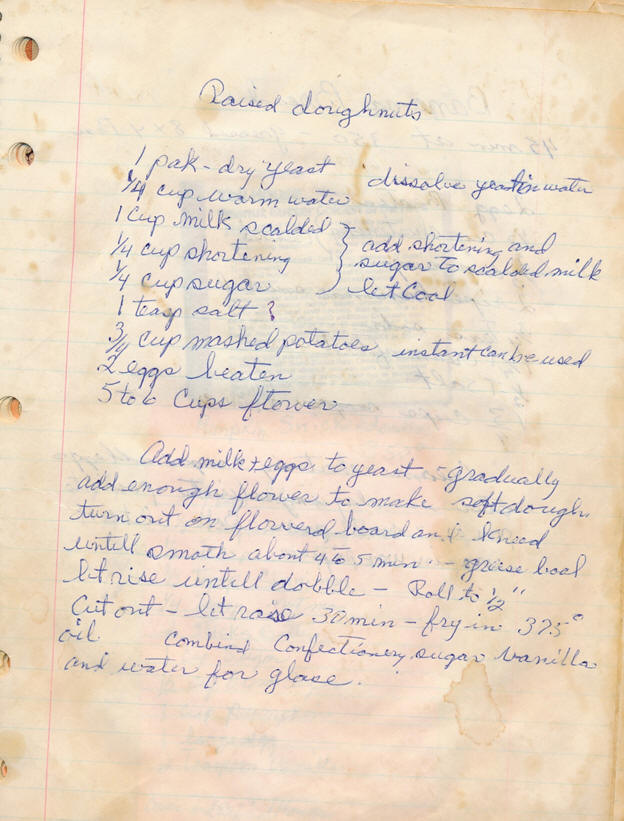 Raised doughnuts
1 pak - dry yeast
dissolve yeast in water
1/4 cup warm water
1 cup milk scalded
1/4 cup shortening
add shortening and
sugar to scalded milk
1/4 cup sugar
let cool
1 teasp salt
3/4 cup mashed potatoes instant can be used
2 eggs beaten
5 to 6 cups flower
Add milk + eggs to yeast - gradually
add enough flower to make soft dough
turn out on flowerd board and knead
untill smoth about 4 to 5 min - grease boal
let rise untill dobble - Roll to 1/2"
Cut out - let raise 30 min - fry in 375°
oil combind Confectionery sugar vanilla
and water for glase.